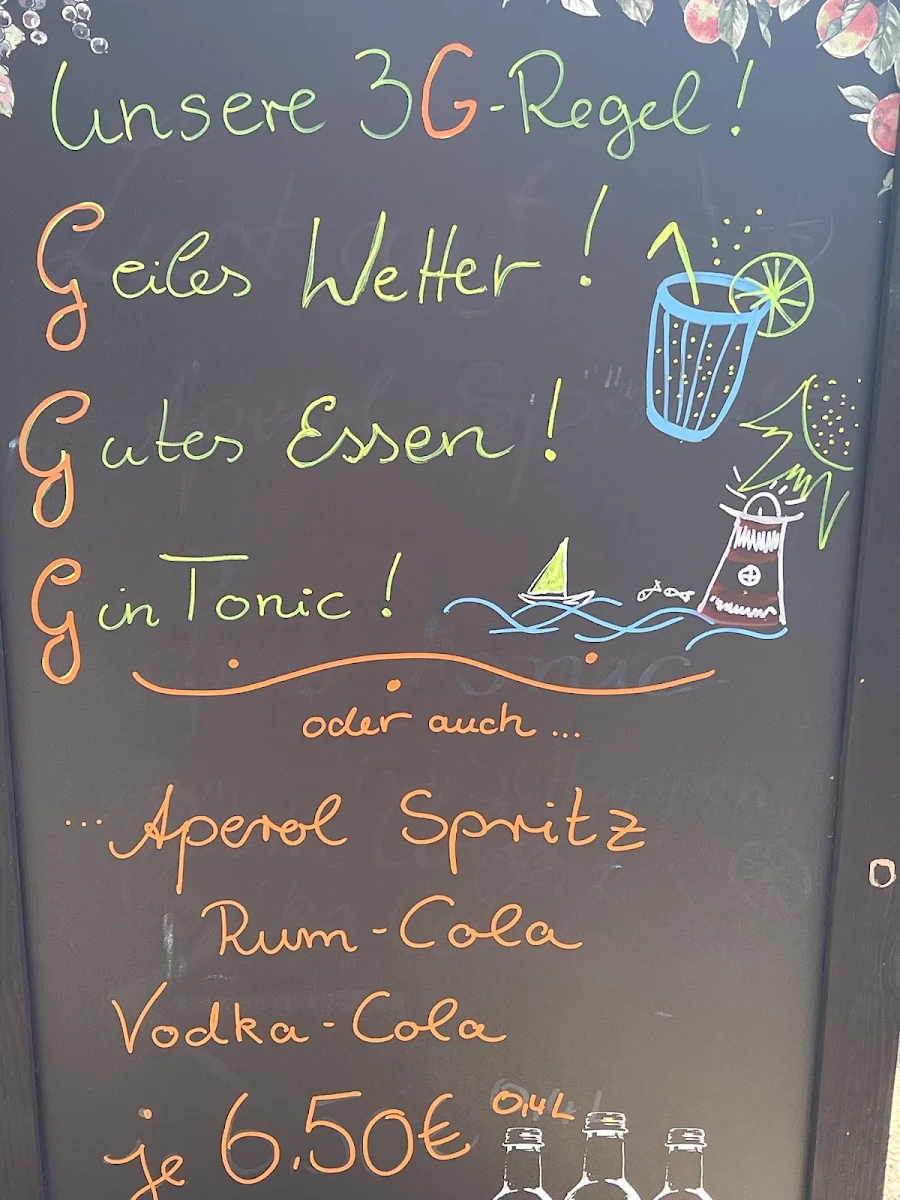 Unsere 3G-Regel!
Geiles Wetter!
Gutes Essen!
Gin Tonic!
oder auch...
... Aperol Spritz
Rum-Cola
Vodka-Cola
je 6.50€ 0,4L